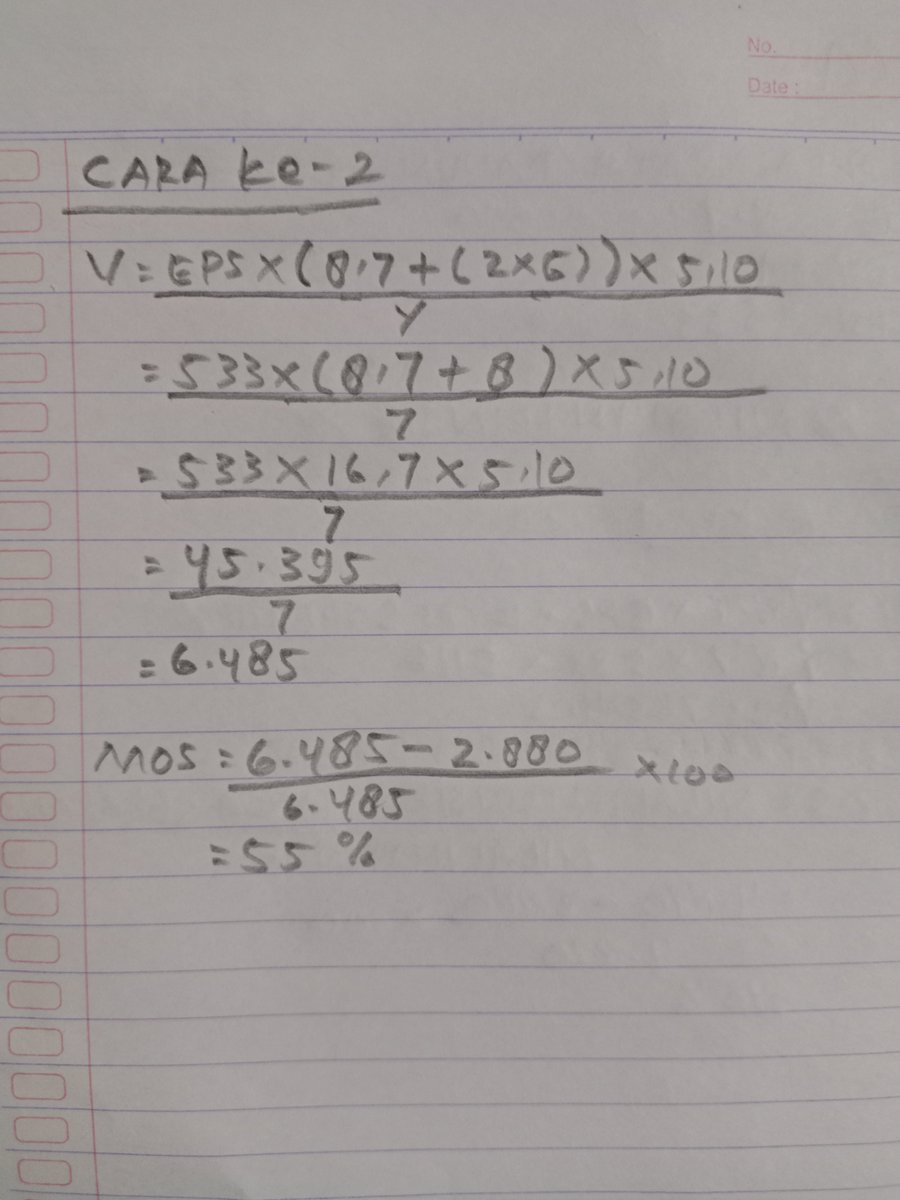 No.
Date :
CARA ke-2
V = EPS x (8,7 + (2x G)) x 5,10
Y
= 533 x (8,7 + 8) x 5,10
7
= 533 x 16,7 x 5,10
7
= 45.395
7
= 6.485
MOS = 6.485 - 2.880 x100
6.485
= 55 %